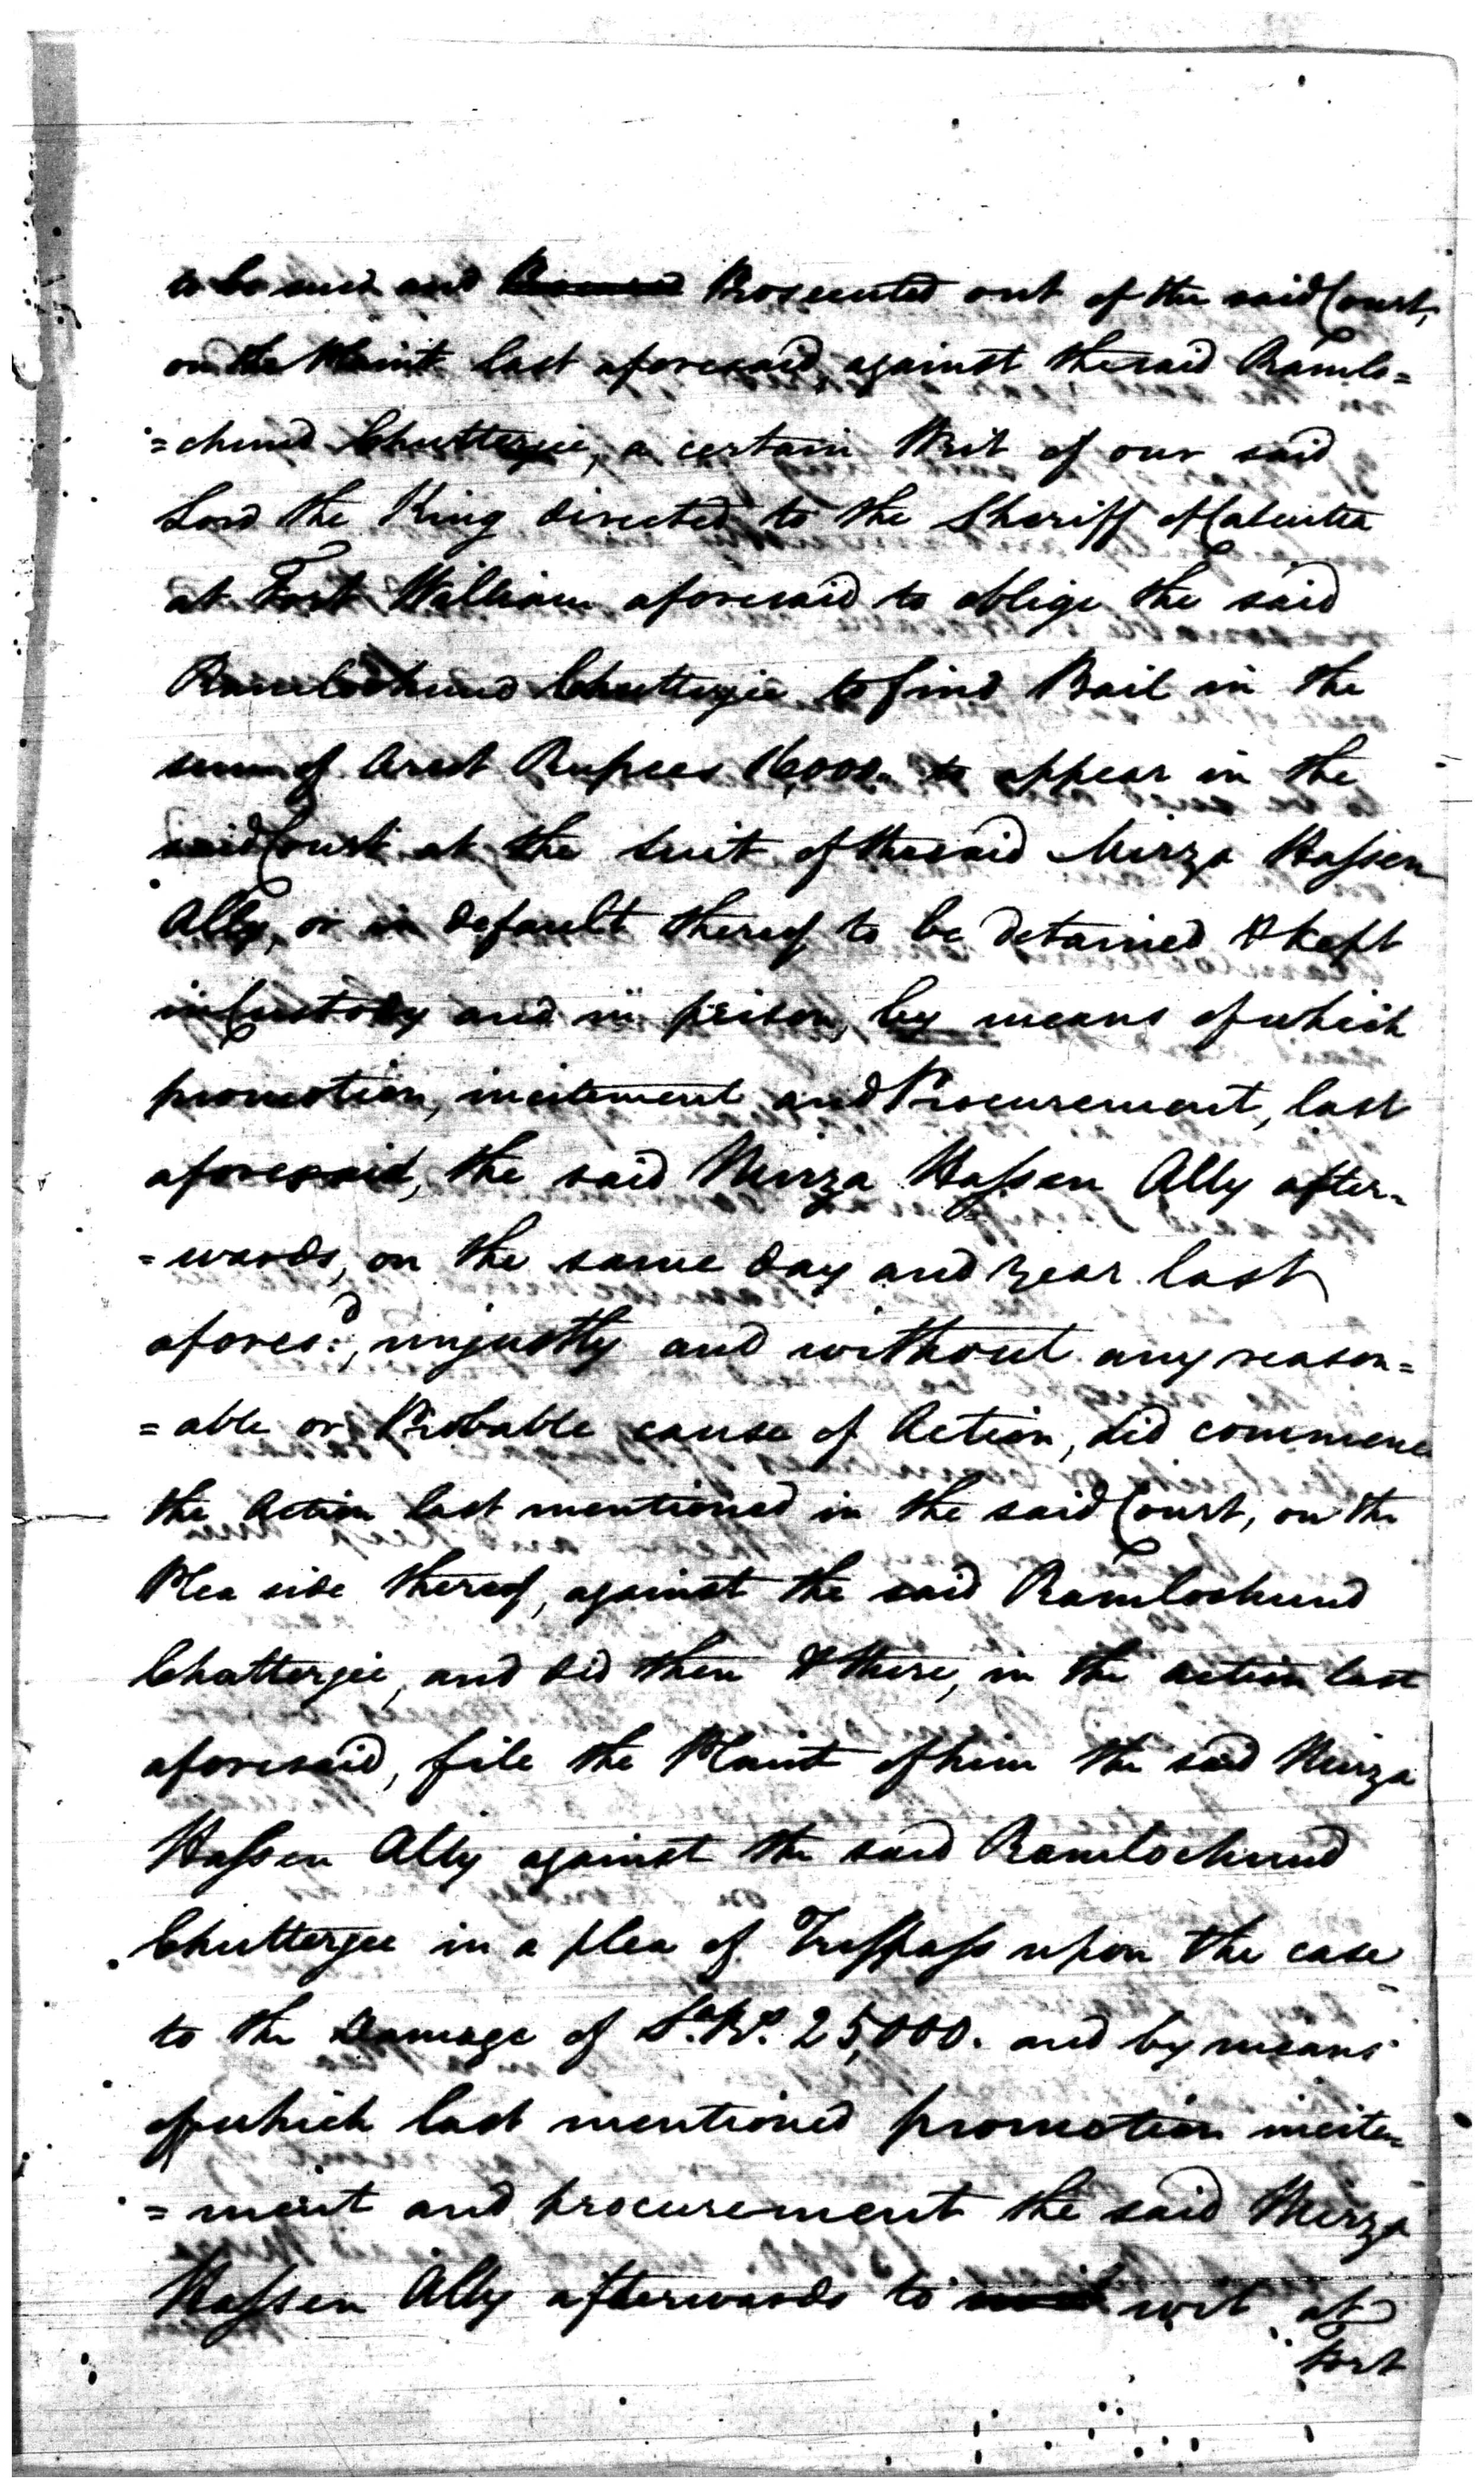 to be sued and Prosecuted out of the said Court,
on the Plaint last aforesaid, against the said Ramlo=
=chund Chutterjee, a certain Writ of our said
Lord the King directed to the Sheriff of Calcutta
at Fort William aforesaid to oblige the said
Ramlochund Chutterjee to find Bail in the
sum of Arcot Rupees 16,000. to appear in the
said Court at the suit of the said Mirza Hassen
Ally, or in default thereof to be detained & kept
in Custody and in prison, by means of which
promotion, incitement and Procurement, last
aforesaid, the said Mirza Hassen Ally after=
=wards, on the same day and year last
afores:d, unjustly and without any reason=
=able or Probable cause of Action, did commence
the Action last mentioned in the said Court, on the
Plea side thereof, against the said Ramlochund
Chatterjee, and did then & there, in the action last
aforesaid, file the Plaint of him the said Mirza
Hassen Ally against the said Ramlochund
Chutterjee in a plea of Trespass upon the case
to the Damage of Sa. Rs. 25,000. and by means
of which last mentioned promotion incite=
=ment and procurement the said Mirza
Hassen Ally afterwards to wit at
Fort